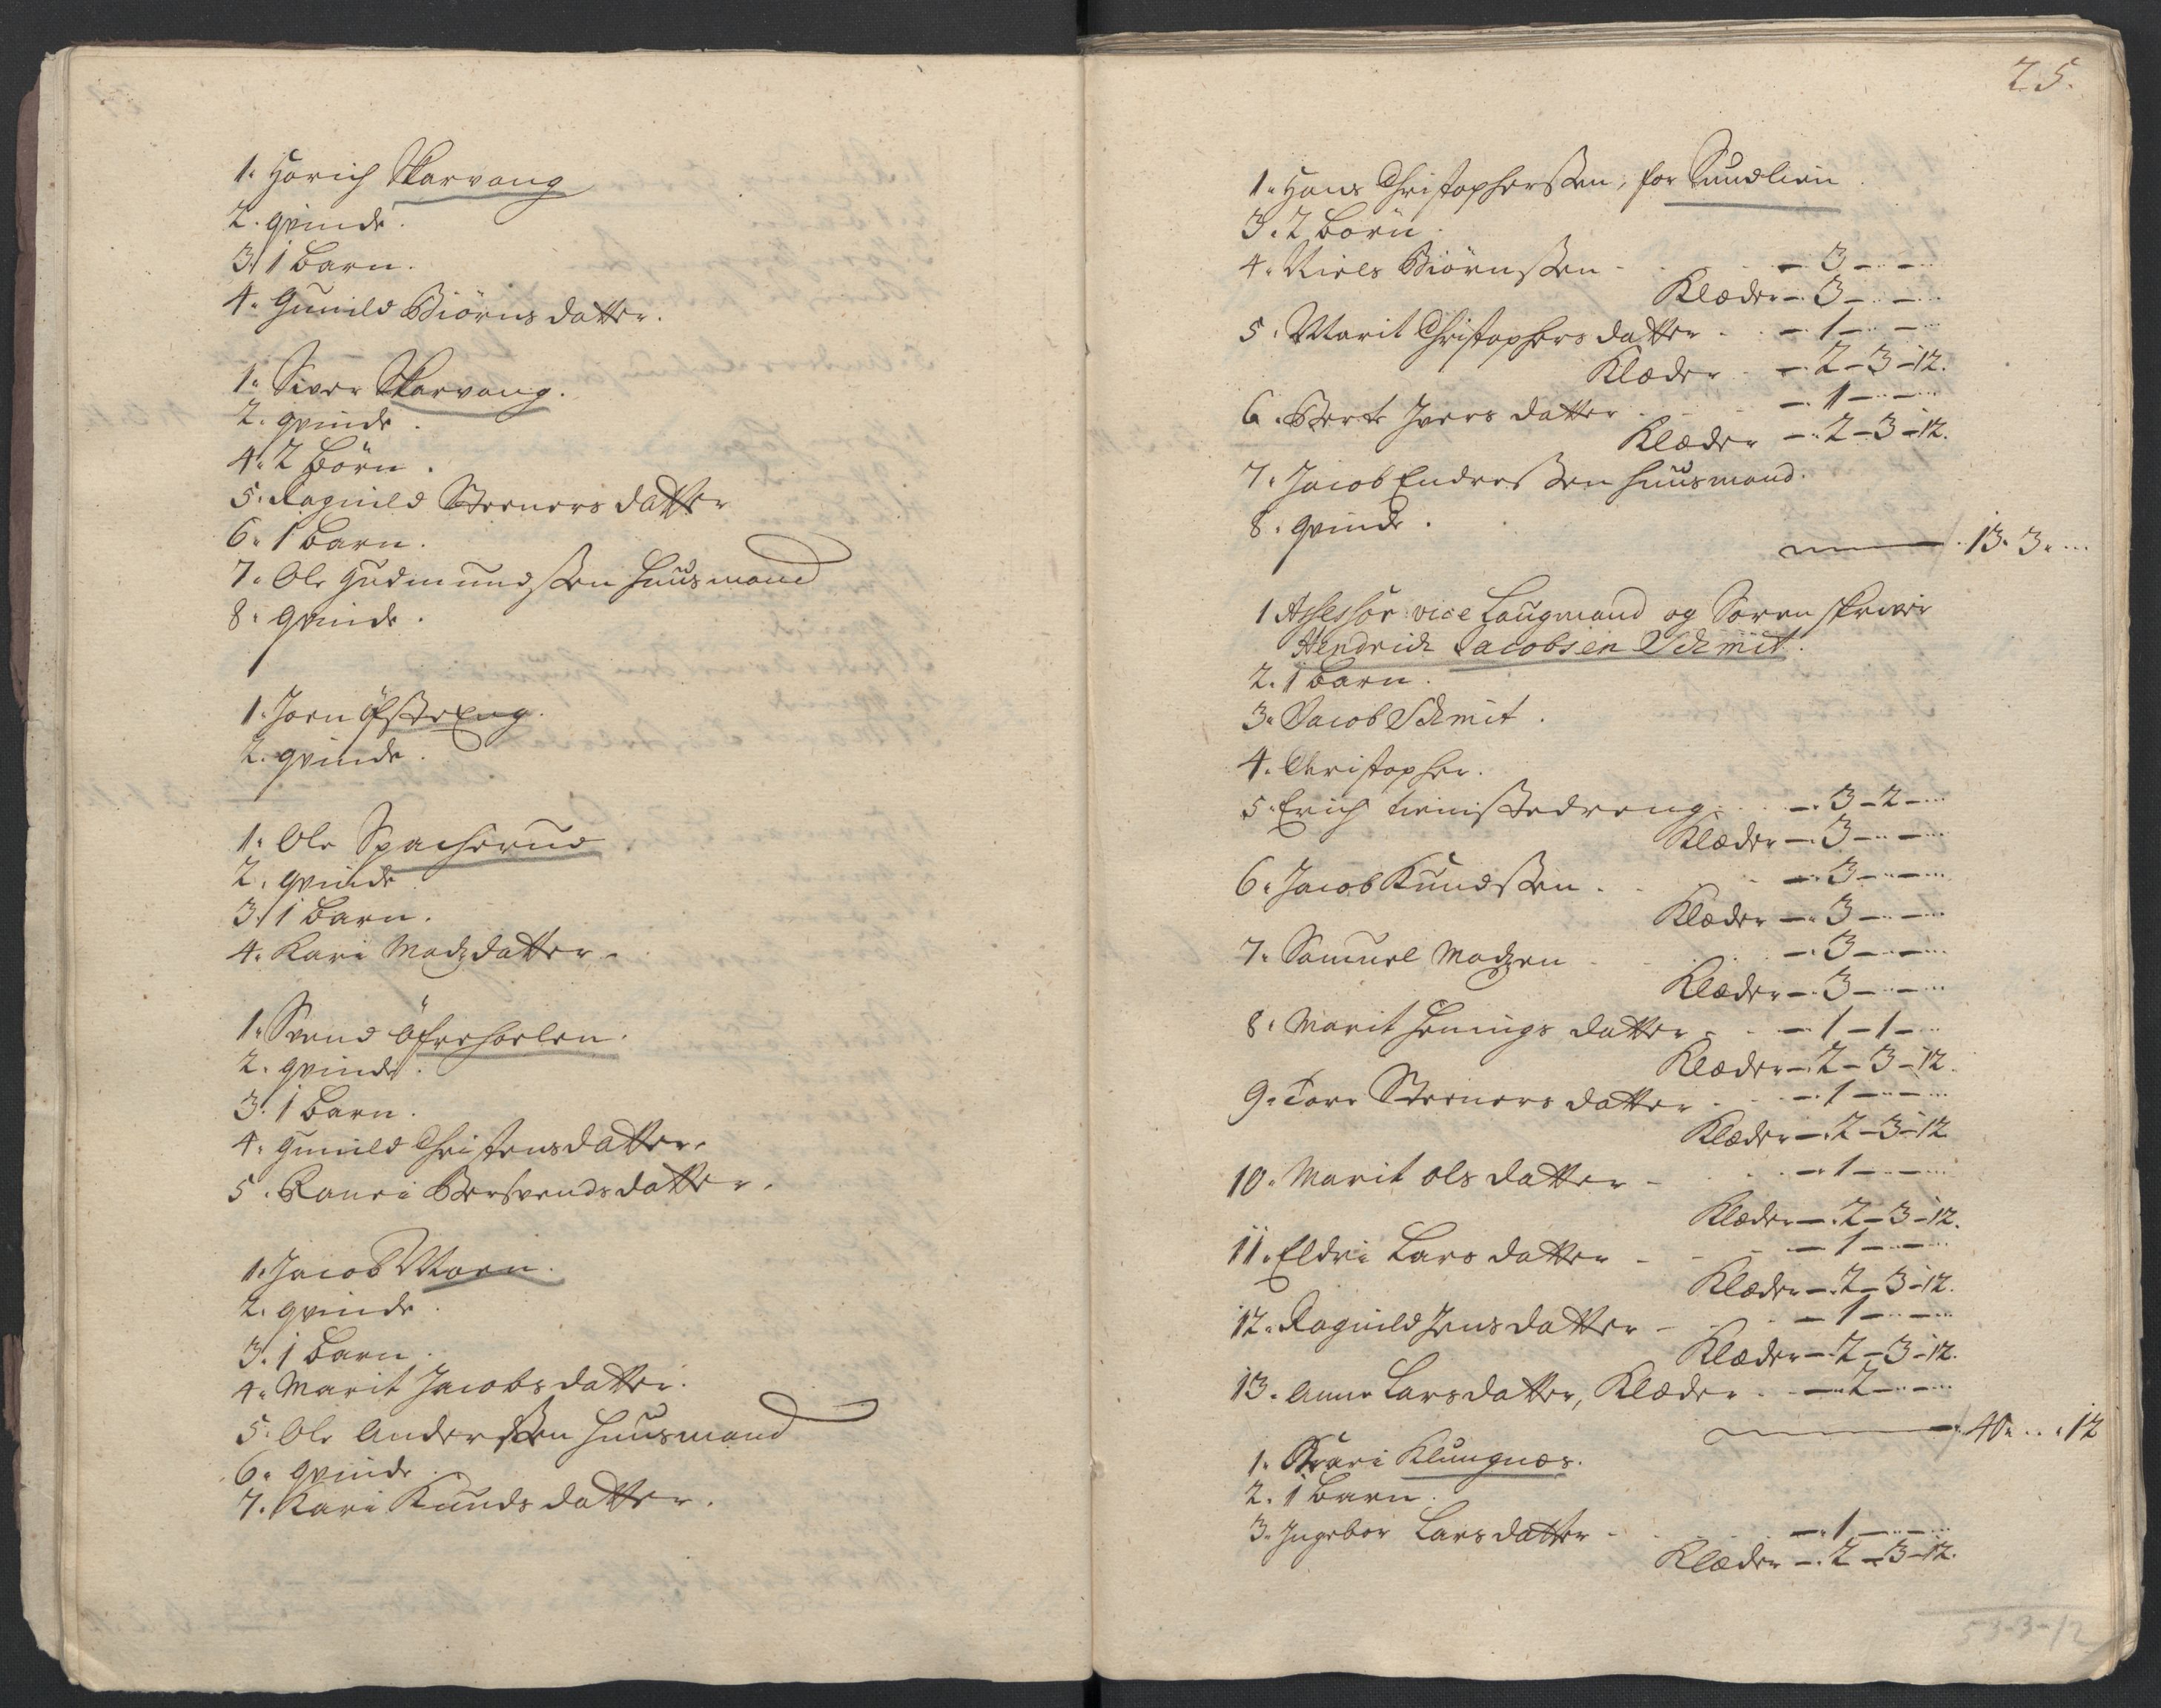 1. Hörich Skarvang
2. qvinde.
3. 1 barn.
4. Gunild Biörns datter.
1. Siver Skarvang.
2. qvinde.
4. 2 börn.
5. Ragnild Steners datter
6. 1 barn.
7. Ole Gudmundssen huusmand
8. qvinde.
1. Joen Östereng.
2. qvinde.
1. Ole Spacherud
2. qvinde
3. 1 barn.
4. Kari Madzdatter.
1. Svend Öfrehoelen.
2. qvinde.
3. 1 barn.
4. Gunild Christensdatter.
5. Ranei Bersvendsdatter.
1. Jacob Moen.
2. qvinde.
3. 1 barn.
4. Marit Jacobsdatter.
5. Ole Anderssen huusmand
6. qvinde.
7. Kari Knuds datter.
25.
1. Hans Christopherssen, for Sundlien.
3. 2 börn.
4. Niels Biörnssen - 3 - -
Klæder - 3 - -
5. Marit Christophers datter - 1 - -
Klæder - 2 - 3 - 12.
6. Berte Ivers datter - 1 - -
Klæder - 2 - 3 - 12.
7. Jacob Endressen huusmand.
8. qvinde.
13. 3. ...
1 Assessor vice Laugmand og Soren skriver
Hendrich Jacobsen Schmit.
2. 1 barn.
3. Jacob Schmit.
4. Christopher.
5. Erich tienistedreng - 3 - 2 -
Klæder - 3 - -
6. Jacob Knudssen - 3 - -
Klæder - 3 - -
7. Samuel Madzen - 3 - -
Klæder - 3 - -
8. Marit Hemings datter - 1 - 1 -
Klæder - 2 - 3 - 12.
9. Tore Steners datter - 1 - -
Klæder - 2 - 3 - 12
10. Marit Ols datter - 1 - -
Klæder - 2 - 3 - 12.
11. Eldri Lars datter - 1 - -
Klæder - 2 - 3 - 12.
12. Ragnild Jens datter - 1 - -
Klæder - 2 - 3 - 12.
13. Anne Larsdatter, Klæder - 2 - -
40. .. 12
1. Klungnæs.
2. 1 barn.
3. Ingebor Larsdatter - 1 - -
Klæder - 2 - 3 - 12.
53-3-12